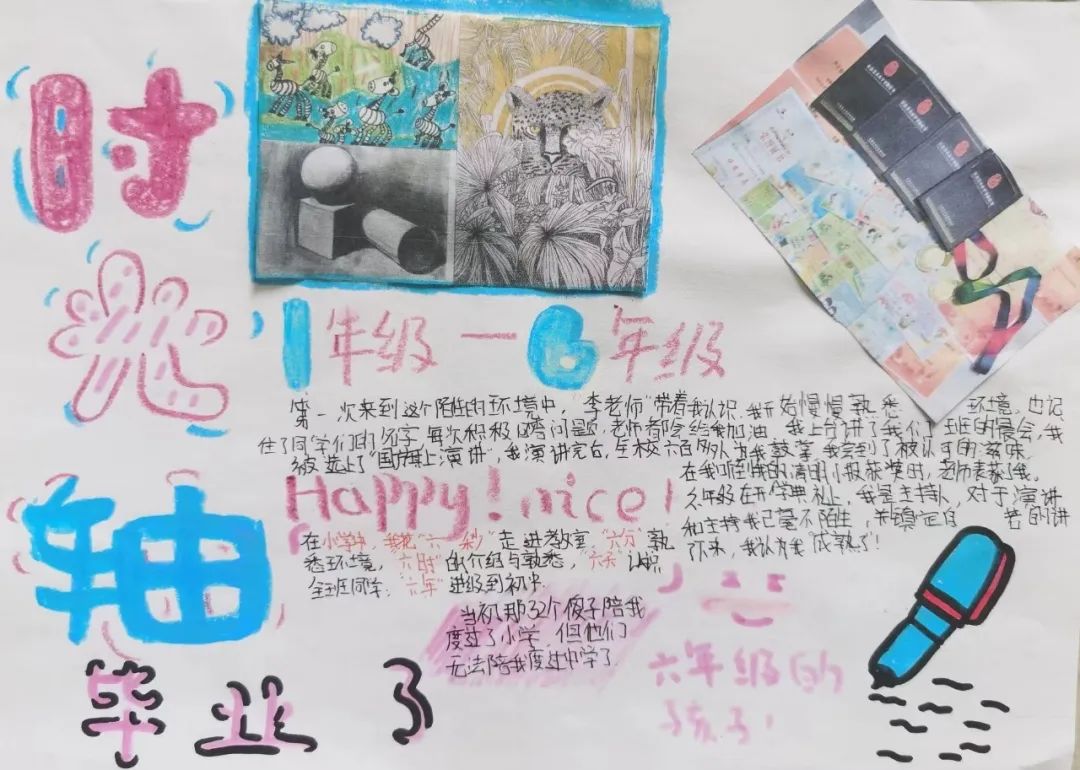 时光轴
1年级一6年级
第一次来到这个陌生的环境中，"李老师"带着我认识.我开始慢慢熟悉环境，也记
住了同学们的名字 每次积极回答问题，老师都会给我加油 我上台讲了我们班的晨会，我
被选上了"国旗上演讲"，我演讲完后，全校六百多人为我鼓掌，我会到了被认可的滋味.
在我听到我的清明小报获奖时，老师表扬了我。
六年级在开学典礼上，我是主持人，对于演讲
和主持我已毫不陌生，并镇定自若的讲
下来，我认为我"成熟了"！
Happy！nice！
在小学中，我花"六秒"走进教室"六分"熟
悉环境，"六时"的介绍与熟悉，"六天"认识
全班同学："六年"进级到初中.
当初那32个傻子陪我
度过了小学，但他们
无法陪我度过中学了
六年级的
孩子！
毕业了